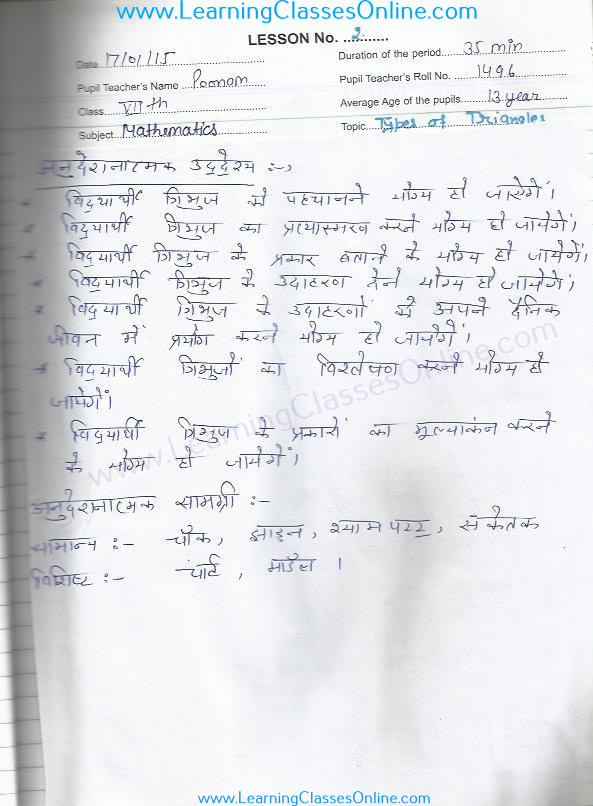 www.LearningClassesOnline.com
LESSON No. ...2...........
Date 17/01/15 Duration of the period 35 min
Pupil Teacher's Name Poonam Pupil Teacher's Roll No. 1496
Class VIIth Average Age of the pupils 13 year
Subject Mathematics Topic Types of Triangles
अनुदेशनात्मक उद्देश्य :->
* विद्यार्थी त्रिभुज को पहचानने योग्य हो जाएगें।
* विद्यार्थी त्रिभुज का प्रत्यास्मरण करने योग्य हो जायेगें।
* विद्यार्थी त्रिभुज के प्रकार बताने के योग्य हो जायेगें।
* विद्यार्थी त्रिभुज के उदाहरण देने योग्य हो जायेगें।
* विद्यार्थी त्रिभुज के उदाहरणों को अपने दैनिक
जीवन में प्रयोग करने योग्य हो जायेगें।
* विद्यार्थी त्रिभुजों का विश्लेषण करने योग्य हो
जायेगें।
* विद्यार्थी त्रिभुज के प्रकारों का मूल्याकंन करने
के योग्य हो जायेगें।
अनुदेशनात्मक सामग्री :-
सामान्य :- चौक, झाड़न, श्यामपट्ट, संकेतक
विशिष्ट :- चार्ट, माडॅल ।
www.LearningClassesOnline.com
www.LearningClassesOnline.com